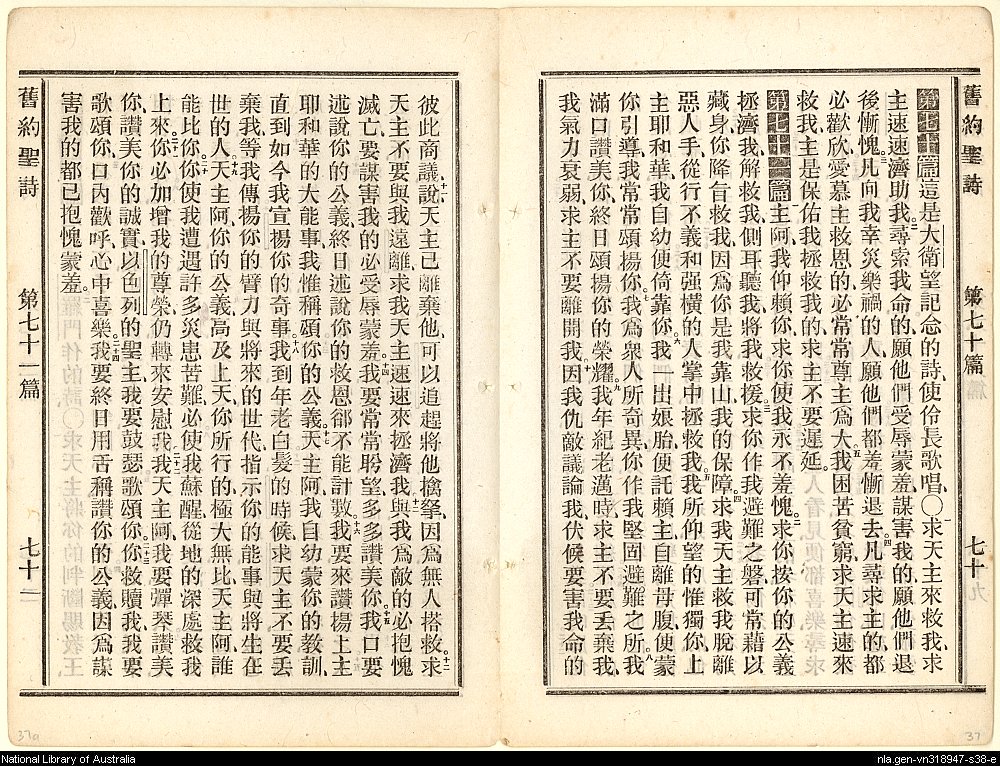 舊約聖詩 第七十篇 七十九
第七十篇這是大衛望記念的詩使伶長歌唱〇一求天主來救我求
主速速濟助我二尋索我命的願他們受辱蒙羞謀害我的願他們退
後慚愧三凡向我幸災樂禍的人願他們都羞慚退去四凡尋求主的都
必歡欣愛慕主救恩的必常常尊主爲大五我困苦貧窮求天主速來
救我主是保佑我拯救我的求主不要遲延
第七十一篇一主阿我仰賴你求你使我永不羞愧二求你按你的公義
拯濟我解救我側耳聽我將我救援三求你作我避難之磐可常藉以
藏身你降旨救我因爲你是我靠山我的保障四求我天主救我脫離
惡人手從行不義和强橫的人掌中拯救我五我所仰望的惟獨你上
主耶和華我自幼便倚靠你六我一出娘胎便託賴主自離母腹便蒙
你引導我常常頌揚你七我爲衆人所奇異你作我堅固避難之所八我
滿口讚美你終日頌揚你的榮耀九我年紀老邁時求主不要丟棄我
我氣力衰弱求主不要離開我十因我仇敵議論我伏候要害我命的
彼此商議十一說天主已離棄他可以追趕將他擒拏因爲無人搭救十二求
天主不要與我遠離求我天主速速來拯濟我十三與我爲敵的必抱愧
滅亡要謀害我的必受辱蒙羞十四我要常常盼望多多讚美你十五我口要
述說你的公義終日述說你的救恩卻不能計數十六我要來讚揚上主
耶和華的大能事我惟稱頌你的公義十七天主阿我自幼蒙你的教訓
直到如今我宣揚你的奇事十八我到年老白髮的時候求天主不要丟
棄我等我傳揚你的臂力與將來的世代指示你的能事與將生在
世的人十九天主阿你的公義高及上天你所行的極大無比天主阿誰
能比你二十你使我遭遇許多災患苦難必使我蘇醒從地的深處救我
上來二十一你必加增我的尊榮仍轉來安慰我二十二我天主阿我要彈琴讚美
你讚美你的誠實以色列的聖主我要鼓瑟歌頌你二十三你救贖我我要
歌頌你口內歡呼心中喜樂二十四我要終日用舌稱讚你的公義因爲謀
害我的都已抱愧蒙羞
舊約聖詩 第七十一篇 七十一
37a
37
National Library of Australia
nla.gen-vn318947-s38-e